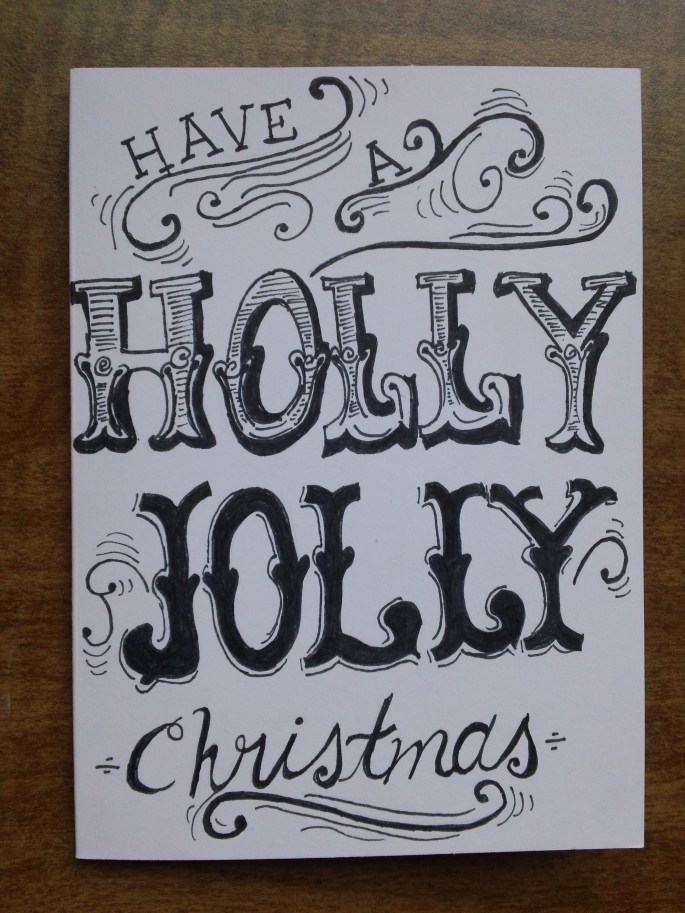 HAVE A
HOLLY
JOLLY
Christmas